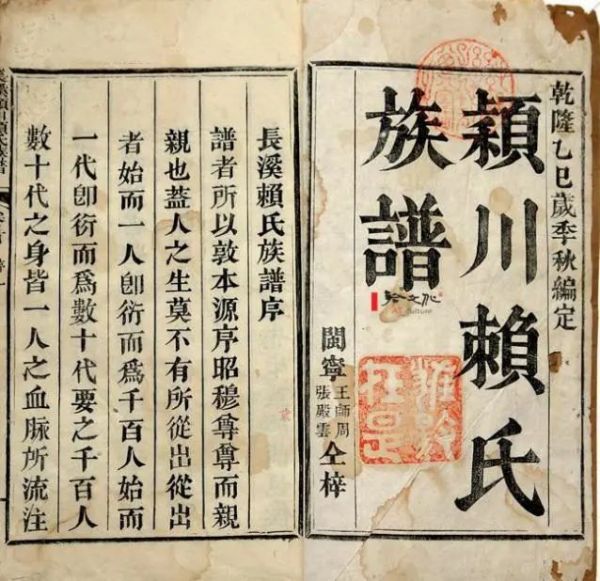 乾隆乙巳歲季秋編定
穎川賴氏
族譜
閩寧王師周張殿雲仝梓
長溪賴氏族譜序
譜者所以敦本源序昭穆尊尊而親
親也蓋人之生莫不有所從出從出
者始而一人卽衍而爲千百人始而
一代卽衍而爲數十代要之千百人
數十代之身皆一人之血脈所流注